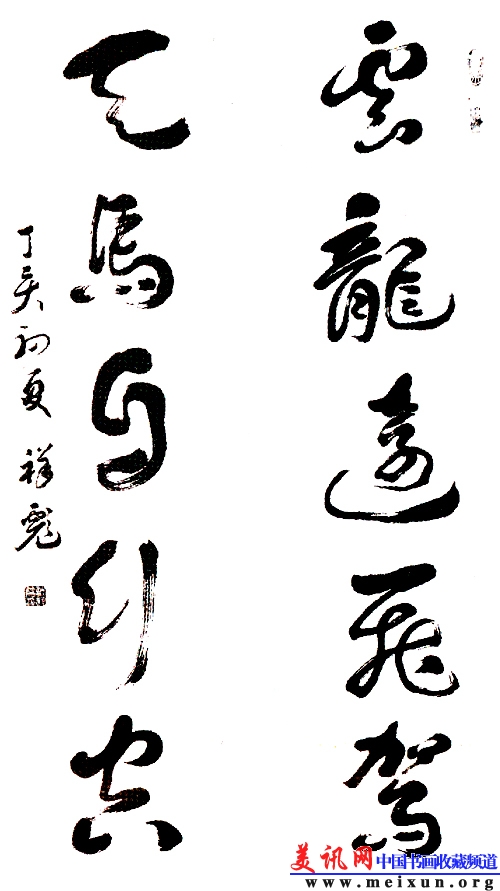 雲龍遠飛駕
天馬自行空
丁亥初夏 祥彪
美讯网 中国书画收藏频道
www.meixun.org